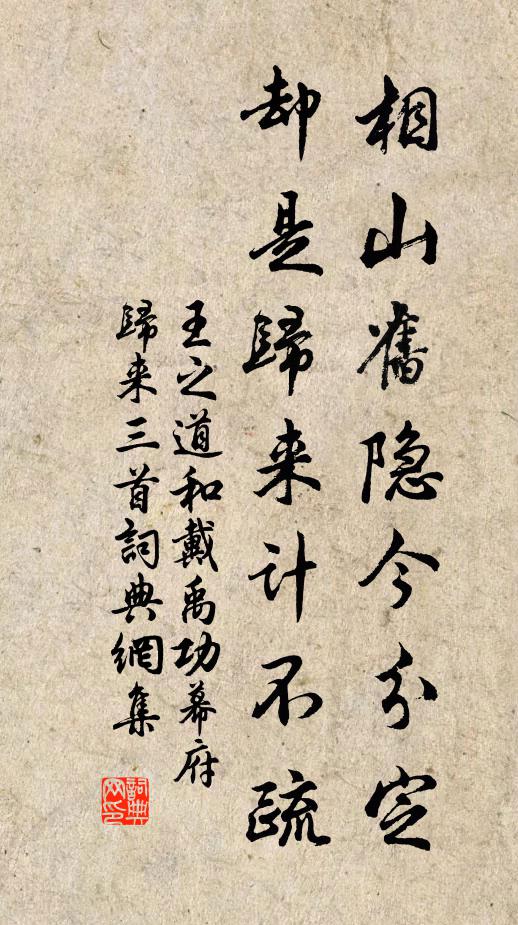 相山舊隐今分定
却是歸来计不疏
王之道和戴禹功幕府
歸来三首詞典網集
詞典
网印